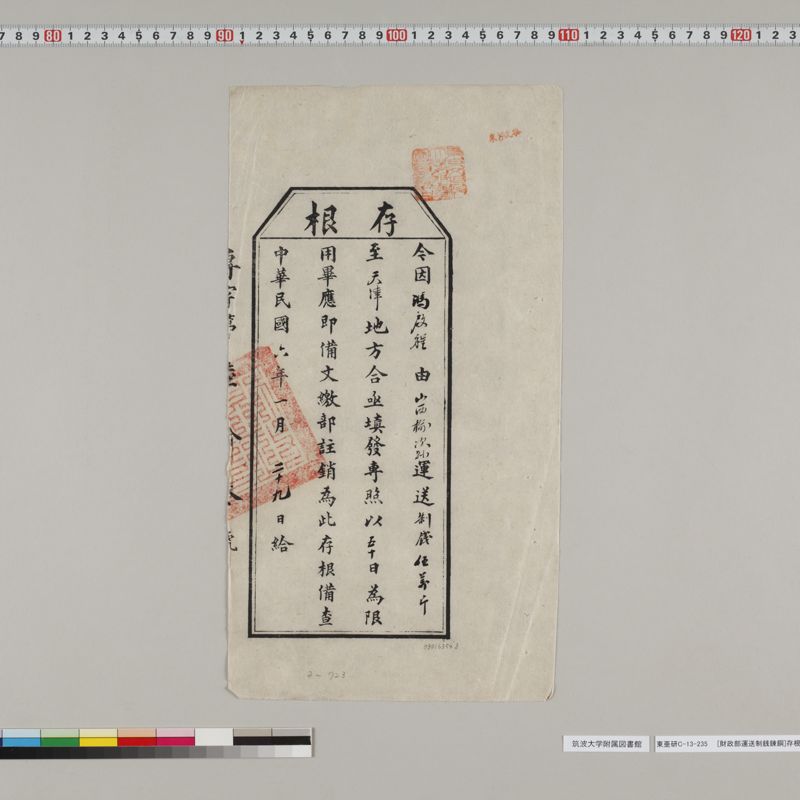 7 8 9 80 1 2 3 4 5 6 7 8 9 90 1 2 3 4 5 6 7 8 9 100 1 2 3 4 5 6 7 8 9 110 1 2 3 4 5 6 7 8 9 120 1 2 3
存根
今因馮啟程由山西榆次縣運送制錢伍萬斤
至天津地方合亟填發專照以五十日為限
用畢應即備文繳部註銷為此存根備查
中華民國六年一月二十九日給
號
2-723
筑波大学附属図書館
東亜研C-13-235 [財政部運送制銭錬銅]存根